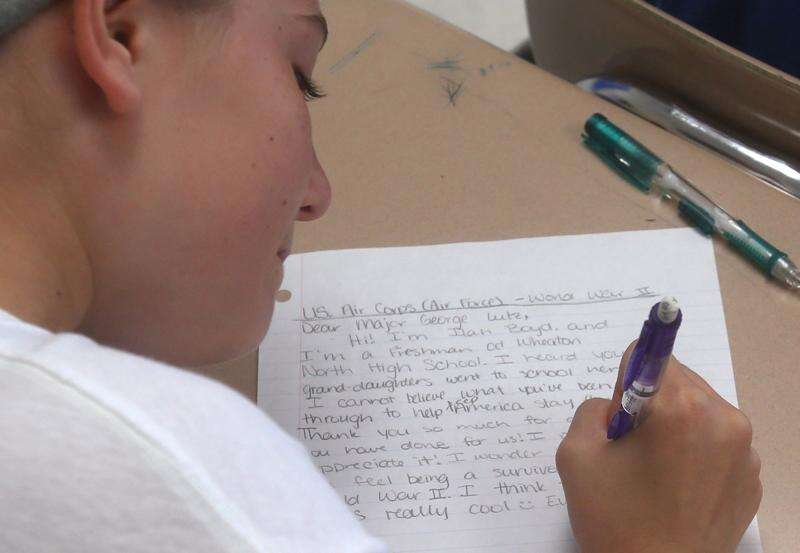 U.S. Air Corps (Air Force) - World War II
Dear Major George Lutz,
Hi! I'm Dan Boyd, and
I'm a Freshman at Wheaton
North High School. I heard you
grand-daughters went to school her
I cannot believe what you've been
through to help keep America stay
Thank you so much for
ou have done for us! I
ppreciate it! I wonder
feel being a survive
ld War II. I think
s really cool :) Ev